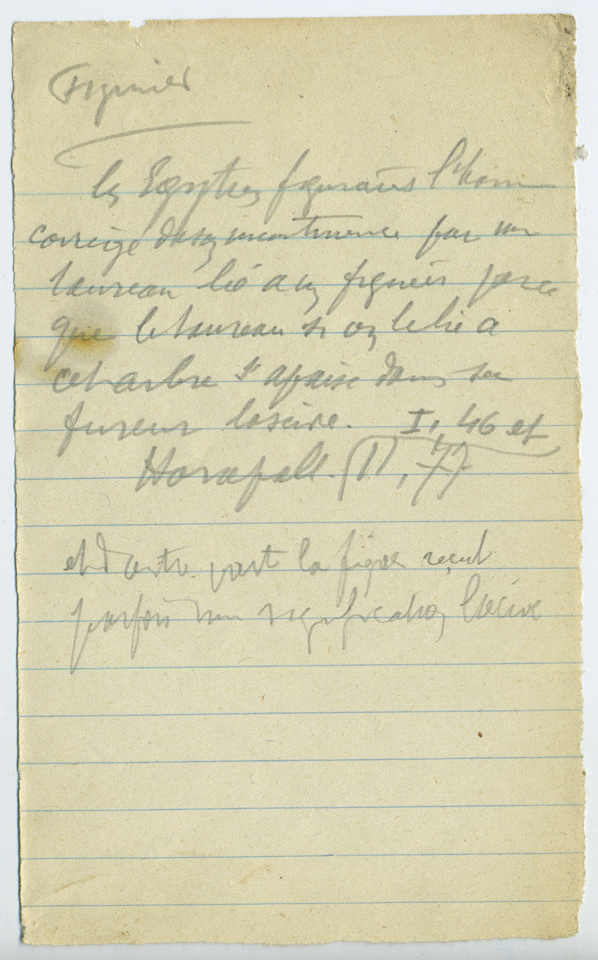 Figuier
les Egyptiens figuraient l'homme
corrigé de son incontinence par un
taureau lié a un figuier parce
que le taureau si on le lie a
cet arbre s'apaise dans sa
fureur lascive. I, 46 et
Horapoll. II, 77
et d'autre part la figue reçut
parfois une signification lascive